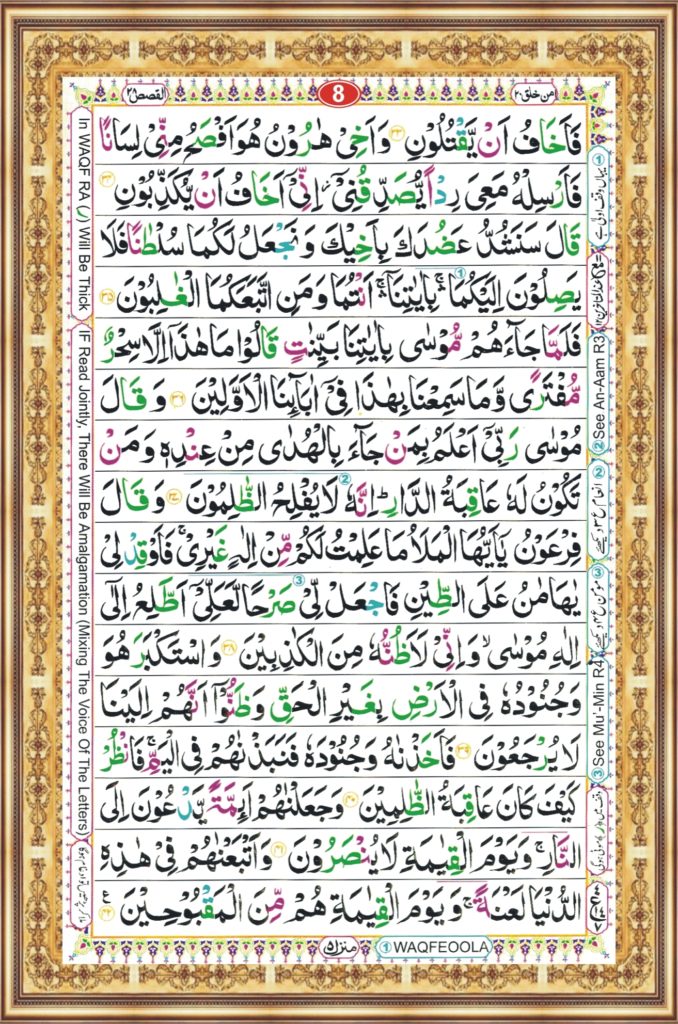 من خلق ۲۰
8
القصص ۲۸
فَاَخَافُ اَنْ يَّقْتُلُوْنِ ۝۳۳ وَاَخِىْ هٰرُوْنُ هُوَ اَفْصَحُ مِنِّىْ لِسَانًا
فَاَرْسِلْهُ مَعِىَ رِدْاً يُّصَدِّقُنِىْٓ ۫ اِنِّىْٓ اَخَافُ اَنْ يُّكَذِّبُوْنِ ۝۳۴
قَالَ سَنَشُدُّ عَضُدَكَ بِاَخِيْكَ وَنَجْعَلُ لَكُمَا سُلْطٰنًا فَلَا
يَصِلُوْنَ اِلَيْكُمَا ۛۚ بِاٰيٰتِنَآ ۛۚ اَنْتُمَا وَمَنِ اتَّبَعَكُمَا الْغٰلِبُوْنَ ۝۳۵
فَلَمَّا جَآءَهُمْ مُّوْسٰى بِاٰيٰتِنَا بَيِّنٰتٍ قَالُوْا مَا هٰذَآ اِلَّا سِحْرٌ
مُّفْتَرًى وَّمَا سَمِعْنَا بِهٰذَا فِىْٓ اٰبَآئِنَا الْاَوَّلِيْنَ ۝۳۶ وَقَالَ
مُوْسٰى رَبِّىْٓ اَعْلَمُ بِمَنْ جَآءَ بِالْهُدٰى مِنْ عِنْدِهٖ وَمَنْ
تَكُوْنُ لَهٗ عَاقِبَةُ الدَّارِ ؕ اِنَّهٗ لَا يُفْلِحُ الظّٰلِمُوْنَ ۝۳۷ وَقَالَ
فِرْعَوْنُ يٰٓاَيُّهَا الْمَلَاُ مَا عَلِمْتُ لَكُمْ مِّنْ اِلٰهٍ غَيْرِىْ ۚ فَاَوْقِدْ لِىْ
يٰهَامٰنُ عَلَى الطِّيْنِ فَاجْعَلْ لِّىْ صَرْحًا لَّعَلِّىْٓ اَطَّلِعُ اِلٰٓى
اِلٰهِ مُوْسٰى ۙ وَاِنِّىْ لَاَظُنُّهٗ مِنَ الْكٰذِبِيْنَ ۝۳۸ وَاسْتَكْبَرَ هُوَ
وَجُنُوْدُهٗ فِى الْاَرْضِ بِغَيْرِ الْحَقِّ وَظَنُّوْٓا اَنَّهُمْ اِلَيْنَا
لَا يُرْجَعُوْنَ ۝۳۹ فَاَخَذْنٰهُ وَجُنُوْدَهٗ فَنَبَذْنٰهُمْ فِى الْيَمِّ ۚ فَانْظُرْ
كَيْفَ كَانَ عَاقِبَةُ الظّٰلِمِيْنَ ۝۴۰ وَجَعَلْنٰهُمْ اَئِمَّةً يَّدْعُوْنَ اِلَى
النَّارِ ۚ وَيَوْمَ الْقِيٰمَةِ لَا يُنْصَرُوْنَ ۝۴۱ وَاَتْبَعْنٰهُمْ فِىْ هٰذِهِ
الدُّنْيَا لَعْنَةً ۚ وَيَوْمَ الْقِيٰمَةِ هُمْ مِّنَ الْمَقْبُوْحِيْنَ ۝۴۲
منزل ۵
① WAQFEOOLA
① یہاں وقف اولیٰ ہے
② See An-Aam R3
③ See Mu'-Min R4
In WAQF RA (ر) Will Be Thick
IF Read Jointly, There Will Be Amalgamation (Mixing The Voice Of The Letters)